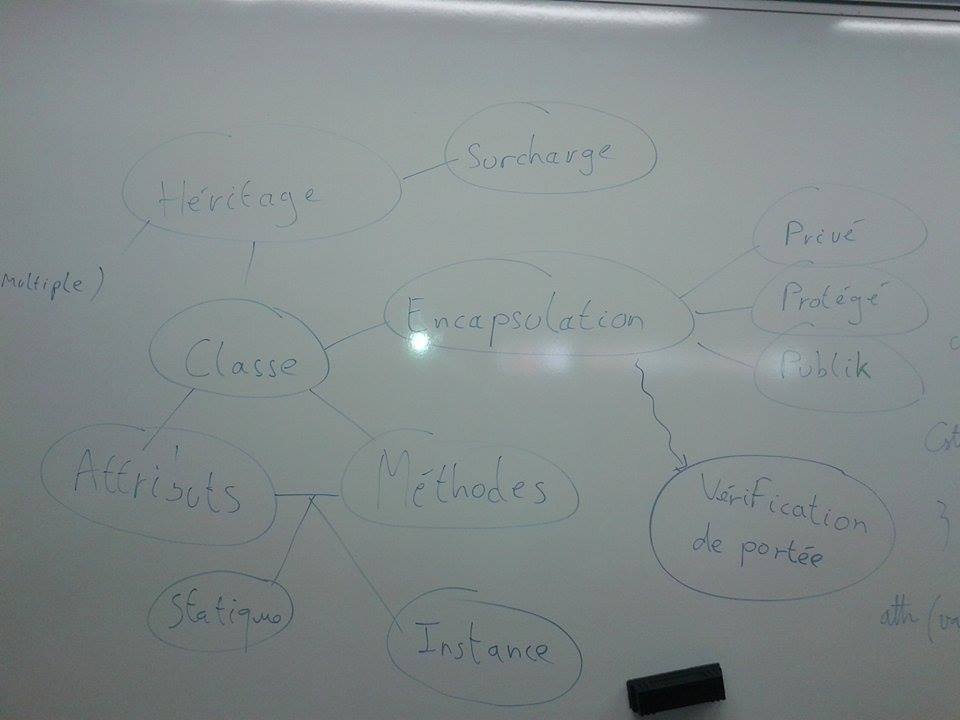 Surcharge
Héritage
Privé
Multiple)
Protégé
Encapsulation
Classe
Publik
Attributs
Méthodes
Vérification
de portée
Statique
Instance
}